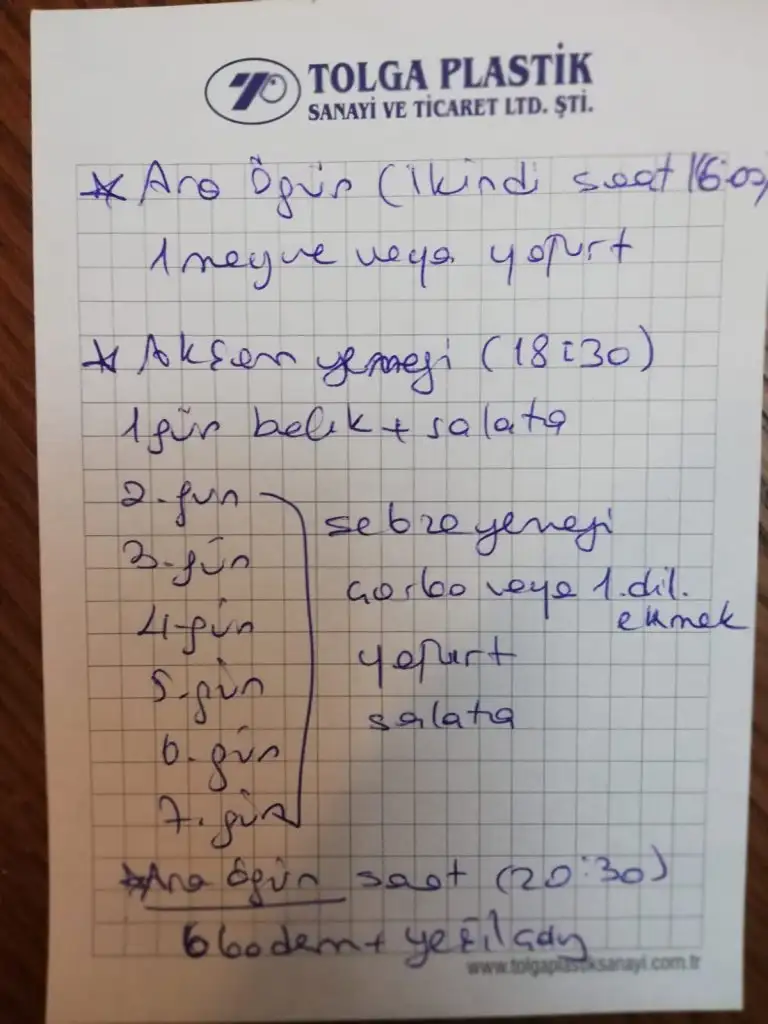 TOLGA PLASTİK
SANAYİ VE TİCARET LTD. ŞTİ.
* Ara Öğün (ikindi saat 16:00)
1 meyve veya yoğurt
* Akşam yemeği (18:30)
1 gün balık + salata
2. gün
3. gün
4. gün
5. gün
6. gün
7. gün
sebze yemeği
çorba veya 1. dil.
ekmek
yoğurt
salata
* Ara öğün saat (20:30)
6 badem + yeşil çay
www.tolgaplastiksanayi.com.tr